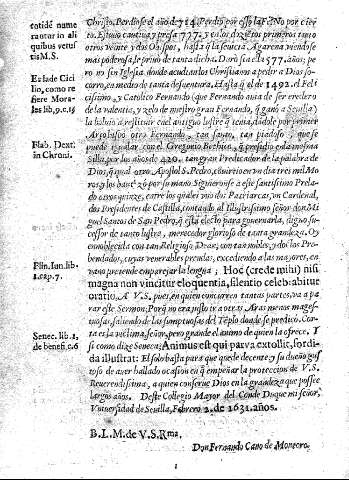 cotidè nume
rantur in ali
quibus vetus
tis M.S.
Ex Iade Cici
lio, como re
fiere Mora-
les lib. 9. c. 15
Flab. Dext.
in Chroni.
Plin. Iun. lib.
1. cap. 7.
Senec. lib. 1.
de benefi. c. 6
Christo. Perdiose el año de 714. Perdio por esso la Fè? No por cier
to. Estuvo cautiva y presa 777. y en los dozientos primeros tuvo
otros veinte y dos Obispos, hasta q̃ la secta Agarena viendose
mas poderosa, le privo de tanta dicha. Durò sin el 577. años; pe
ro no sin Iglesia donde acudian los Christianos a pedir a Dios so-
corro, en medio de tanta desventura, Hasta q̃ el de 1492. el Feli
cissimo, y Catolico Fernando (que Fernando avia de ser eredero
de la valentia, y zelo de nuestro gran Fernando, q̃ ganò a Sevilla)
la bolvio a restituir en el antiguo lustre q̃ tenia, dandole por primer
Arçobispo otro Fernando, tan santo, tan piadoso, que se
puede igualar con el Gregorio Bethico, q̃ presidio en la misma
Silla, por los años de 420. tan gran Predicador de la palabra de
Dios, q̃ qual otro Apostol S. Pedro, convirtio en un dia tres mil Mo
ros, y los bautizò por su mano. Siguieronse a este santissimo Prela-
do otros quinze, entre los quales uvo dos Patriarcas, un Cardenal,
dos Presidentes de Castilla, contando al Illustrissimo señor don Mi
guel Santos de San Pedro, q̃ està electo para governarla, digno suce
ssor de tanto lustro, merecedor glorioso de tanta grandeza. Oy
ennoblecida con tan Religioso Dean; con tan nobles, y doctos Pre
bendados, cuyas venerables prendas, excediendo a las mayores, en
vano pretende emparejar la lengua; Hoc (crede mihi) nisi
magna non vincitur eloquentia, silentio celebrabitur
oratio. A V.S. pues, en quien concurren tantas partes, va a pa
rar este Sermon: Porq̃ no era justo ir a otras Aras menos mages-
tuosas, saliendo de las sumptuosas del Tẽplo donde se predicò. Cor-
ta es la victima, señor, pero grande el animo de quien la ofrece. Y
si como dize Seneca: Animus est qui parva extollit, sordi-
da illustrat: El solo basta para que quede decente y su dueño gus-
toso de aver hallado ocasion en q̃ empeñar la proteccion de V.S.
Reverendissima, a quien conserve Dios en la grandeza que possee
largos años. Deste Collegio Mayor del Conde Duque mi señor,
Universidad de Sevilla, Febrero 2. de 1631. años.
B.L.M. de V.S. Rma.
Don Fernando Cano de Montoro.